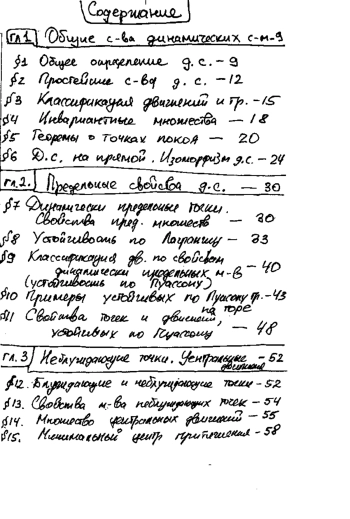 Содержание
Гл1 Общие с-ва динамических с-м-9
§1 Общее определение д.с. - 9
§2 Простейшие с-ва д. с. - 12
§3 Классификация движений и тр. - 15
§4 Инвариантные множества - 18
§5 Теоремы о точках покоя - 20
§6 Д.С. на прямой. Изоморфизм д.с. - 24
гл.2. Предельные свойсва д.с. - 30
§7 Динамически предельные точки.
Свойства пред. множеств - 30
§8 Устойчивость по Лагранжу - 33
§9 Классификация дв. по свойствам
динамически предельных м-в - 40
(устойчивость по Пуассону)
§10 Примеры устойчивых по Пуассону тр. - 43
на торе
§11 Свойства точек и движений,
устойчивых по Пуассону - 48
гл. 3 Неблуждающие точки. Центральные - 52
движения
§12. Блуждающие и неблуждающие точки - 52
§13. Свойства м-ва неблуждающих точек - 54
§14. Множество центральных движений - 55
§15. Минимальный центр притяжения - 58